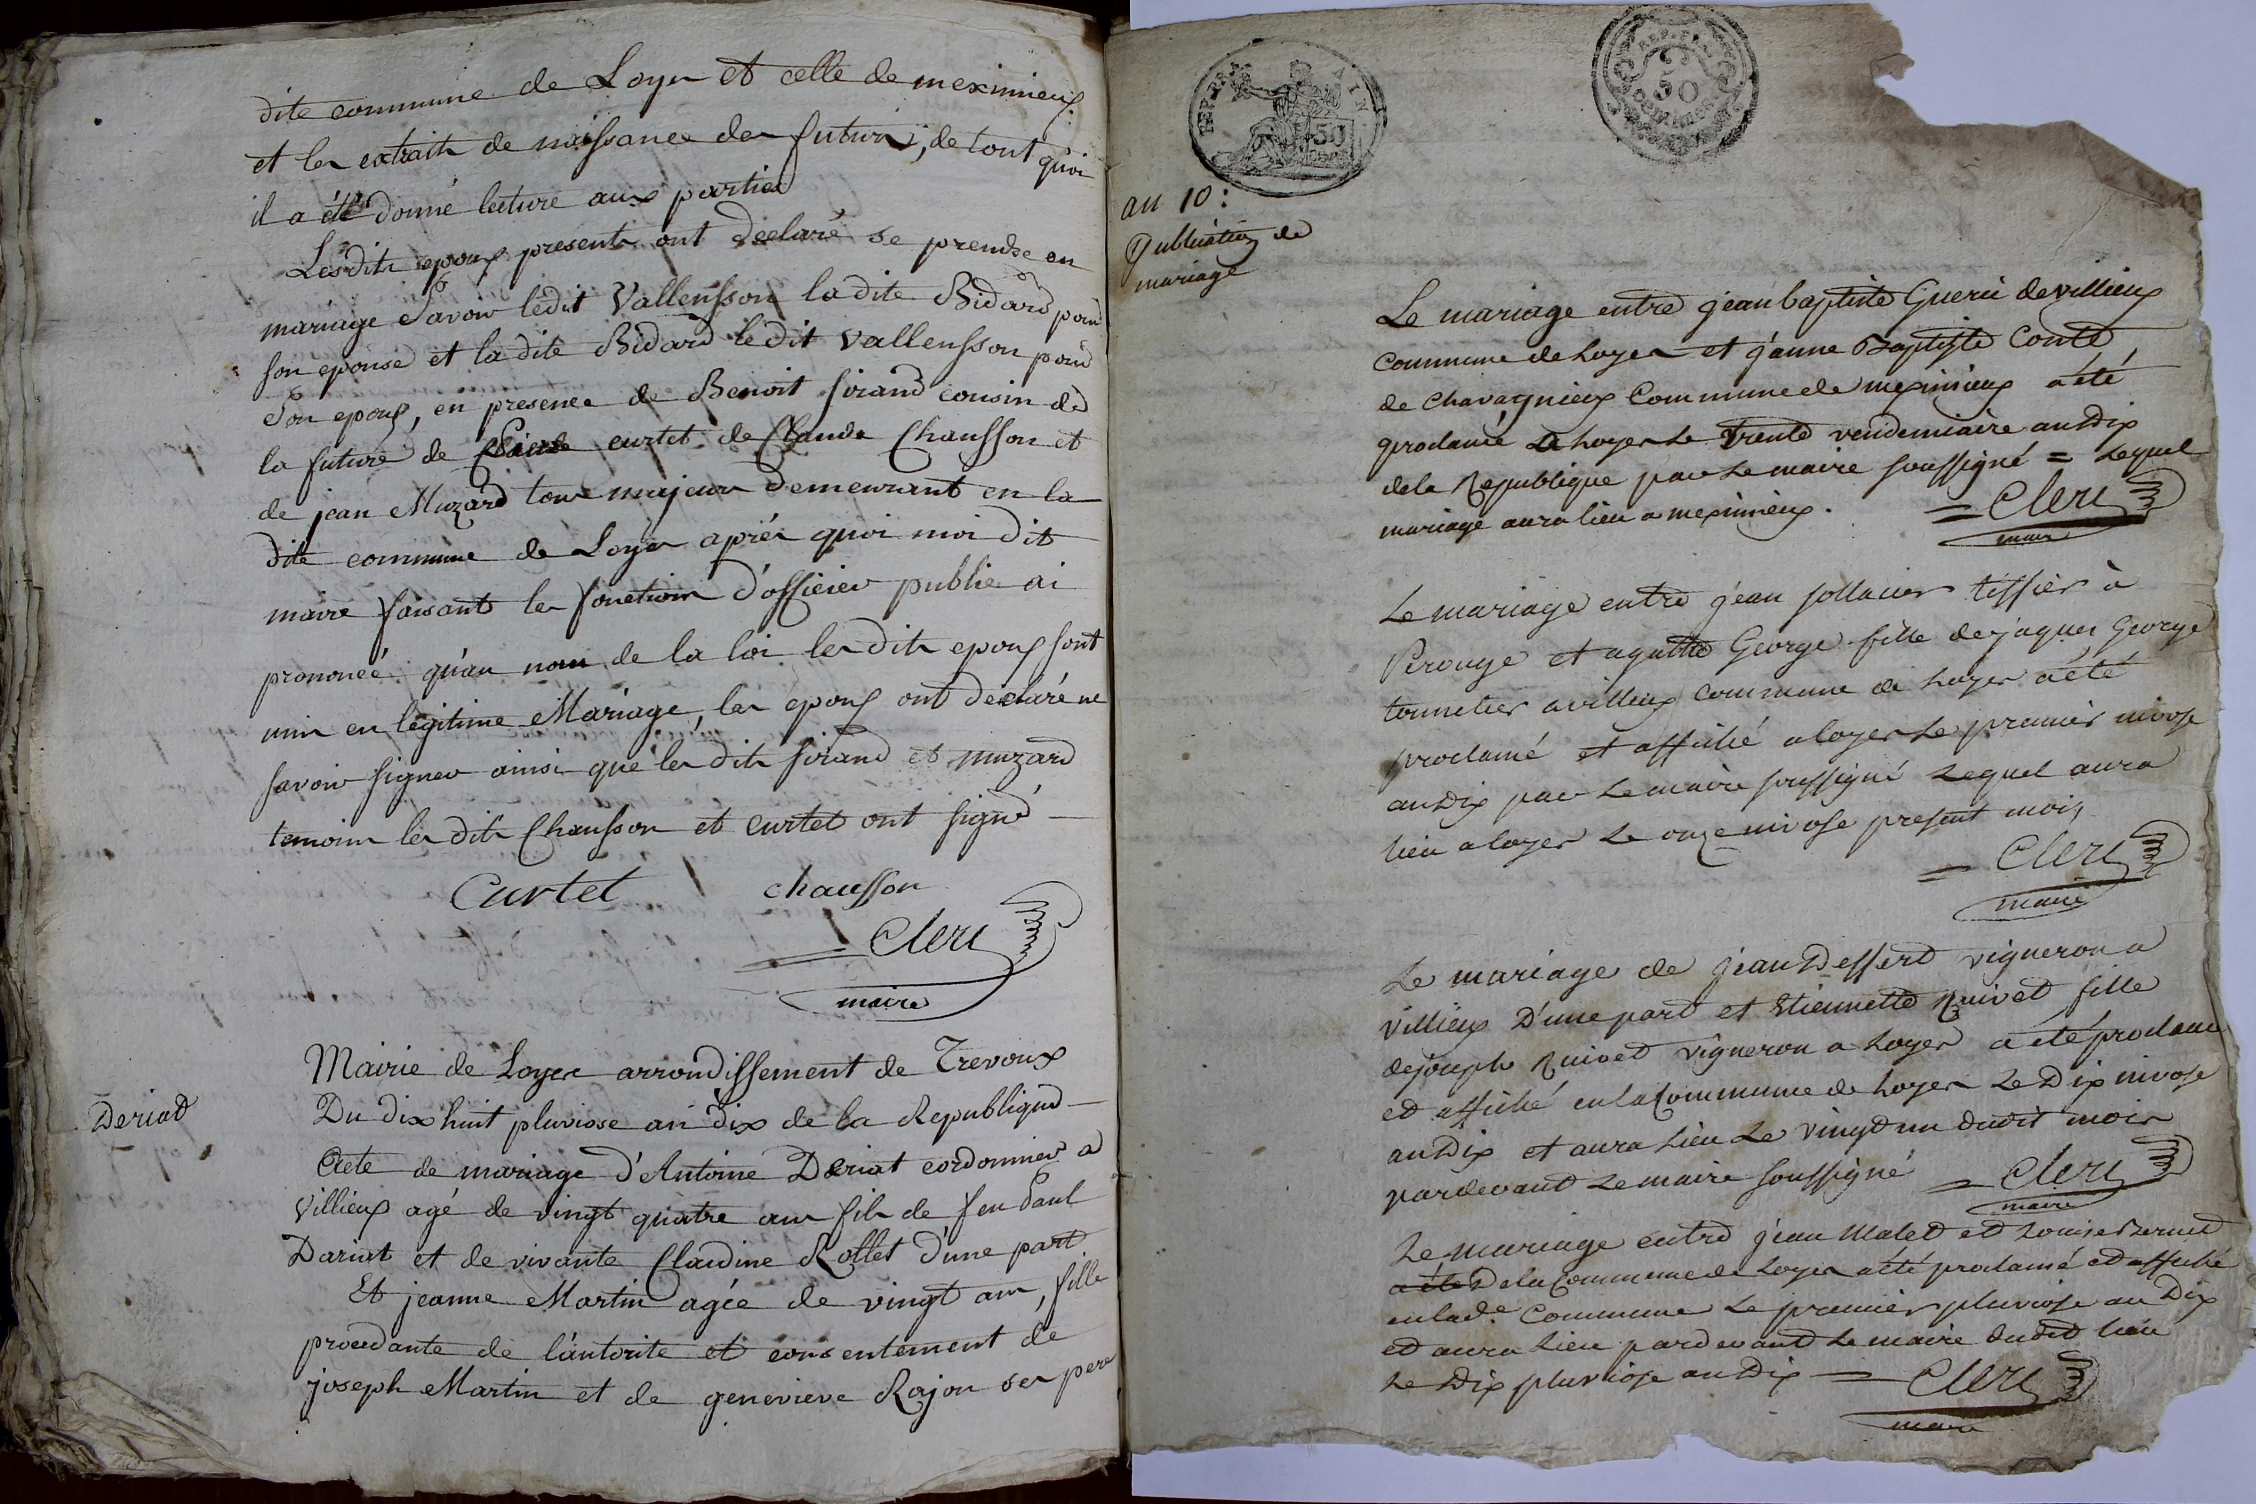 dite commune de Loyes et celle de meximieux
et les extraits de naissance des futurs, de tout quoi
il a été donné lecture aux parties
Lesdits epoux presents ont declaré se prendre en
mariage Savoir ledit Vallensson la dite Bidard pour
son epouse et la dite Bidard le dit Vallensson pour
Son epoux, en presence de Benoit sirand cousin de
la future de curtet de Claude Chausson et
de jean Muzard tous majeurs demeurant en la
dite commune de Loyes après quoi moi dit
maire faisant les fonctions d'officier public ai
prononcé qu'au nom de la loi les dits epoux sont
unis en legitime Mariage, les epoux ont declaré ne
savoir signer ainsi que les dits sirand et muzard
temoins les dits Chausson et Curtet ont signé
Curtet chausson
= Clerc
maire
Deriat
Mairie de Loyes arrondissement de Trevoux
Du dix huit pluviose an dix de la Republique
Acte de mariage d'Antoine Deriat cordonnier a
Villieux agé de vingt quatre ans fils de feu Paul
Dariat et de vivante Claudine Rollet d'une part
Et jeanne Martin agée de vingt ans, fille
procedante de l'autorite et consentement de
joseph Martin et de genevieve Rajon ses pere
REP. FRA. AIN
50
REP. FRA.
50
CENTIMES
an 10:
Publication de
mariage
Le mariage entre jean baptiste Guerii de villieux
commune de Loyes et jeanne Baptiste Conte
de Chavagnieux Commune de meximieux a été
proclamé a Loyes Le trente vendemiaire an dix
de la Republique par Le maire soussigné = Lequel
mariage aura lieu a meximieux. = Clerc
maire
Le mariage entre jean sollacier tissier à
Perouge et agatte George fille de jaques George
tonnelier a villieux commune de Loyes a été
proclamé et affiché a loyes Le premier nivose
an dix par Le maire soussigné Lequel aura
lieu a loyes Le onze nivose present mois
= Clerc
maire
Le mariage de jean Deffert vigneron a
villieux D'une part et Etiennette Quivet fille
de joseph Quivet vigneron a Loyes a été proclamé
et affiché en la Commune de Loyes Le Dix nivose
an Dix et aura Lieu Le vingt un dudit mois
pardevant Le maire soussigné = Clerc
maire
Le mariage entre jean Malet et Louise Bernet
a été De la Commune de Loyes a été proclamé et affiché
en lad.e Commune Le premier pluviose an Dix
et aura Lieu pardevant Le maire dudit lieu
Le Dix pluviose an Dix = Clerc
maire